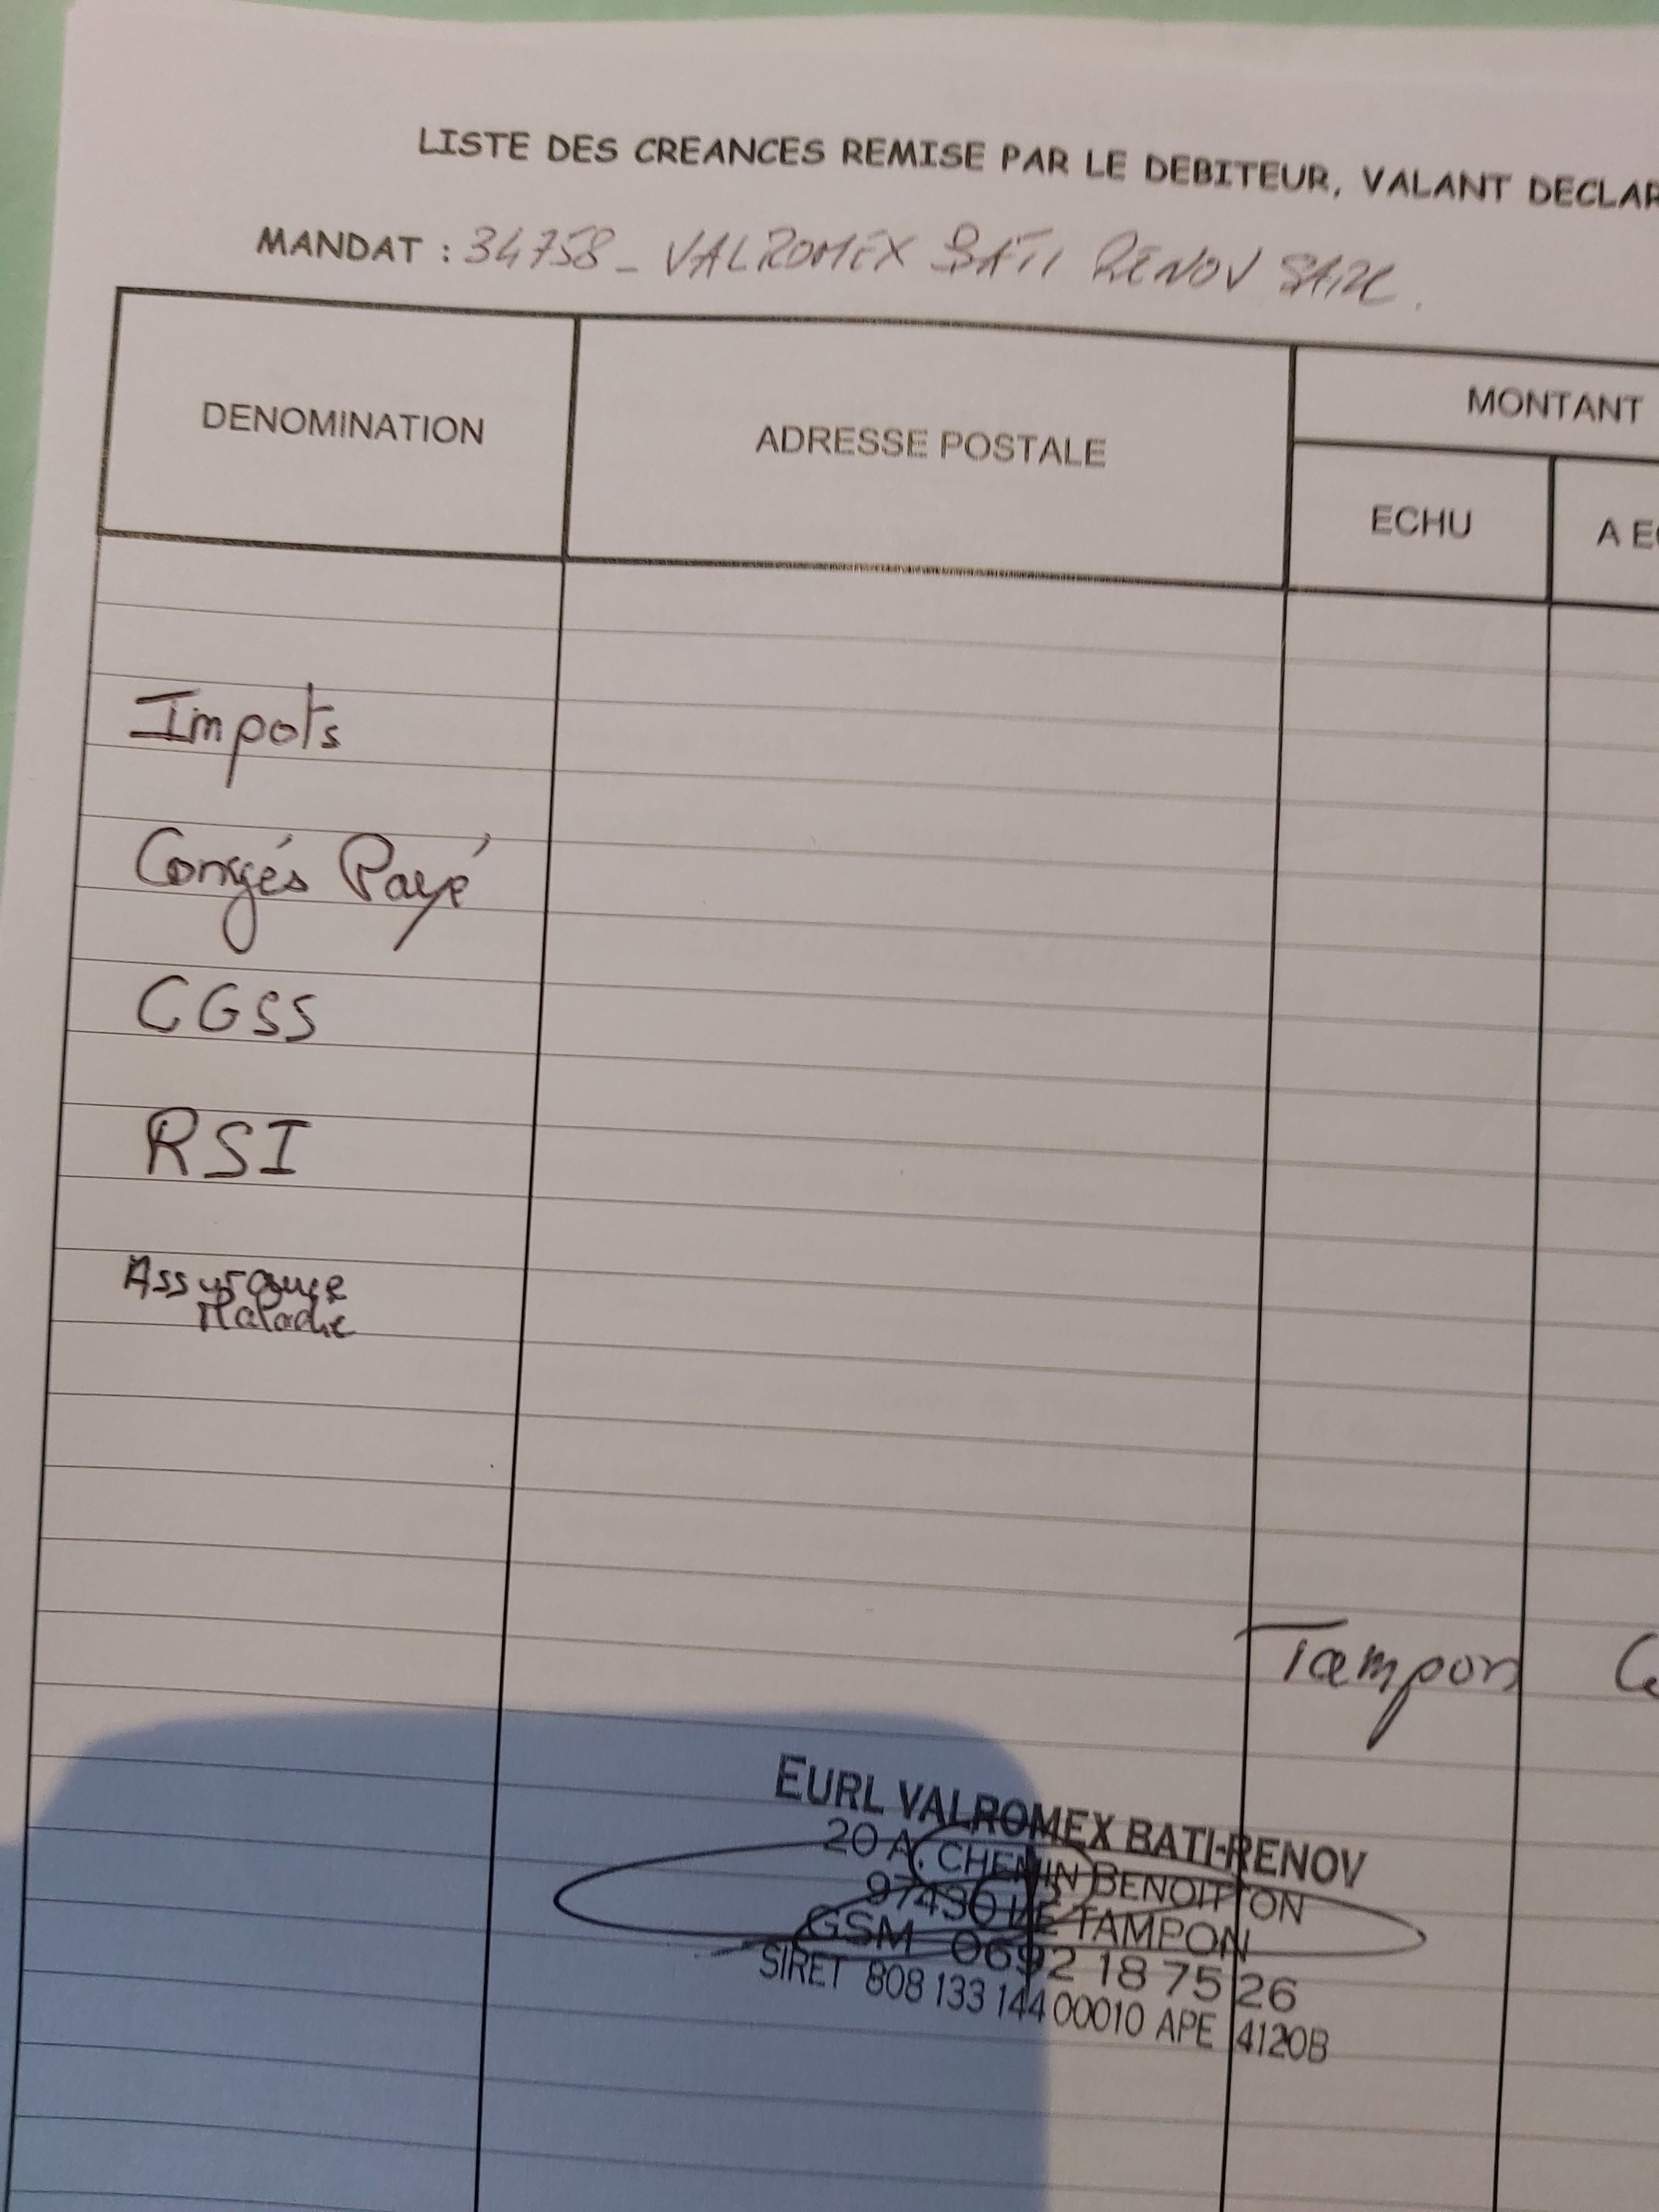 LISTE DES CREANCES REMISE PAR LE DEBITEUR, VALANT DECLAR
MANDAT : 34758 - VALROMEX BATI RENOV SARL.
DENOMINATION
ADRESSE POSTALE
MONTANT
ECHU
A E
Impots
Congés Payé
CGSS
RSI
Assurance
Maladie
Tampon
EURL VALROMEX BATI-RENOV
20 A, CHEMIN BENOITON
97430 LE TAMPON
GSM 0692 18 75 26
SIRET 808 133 144 00010 APE 4120B